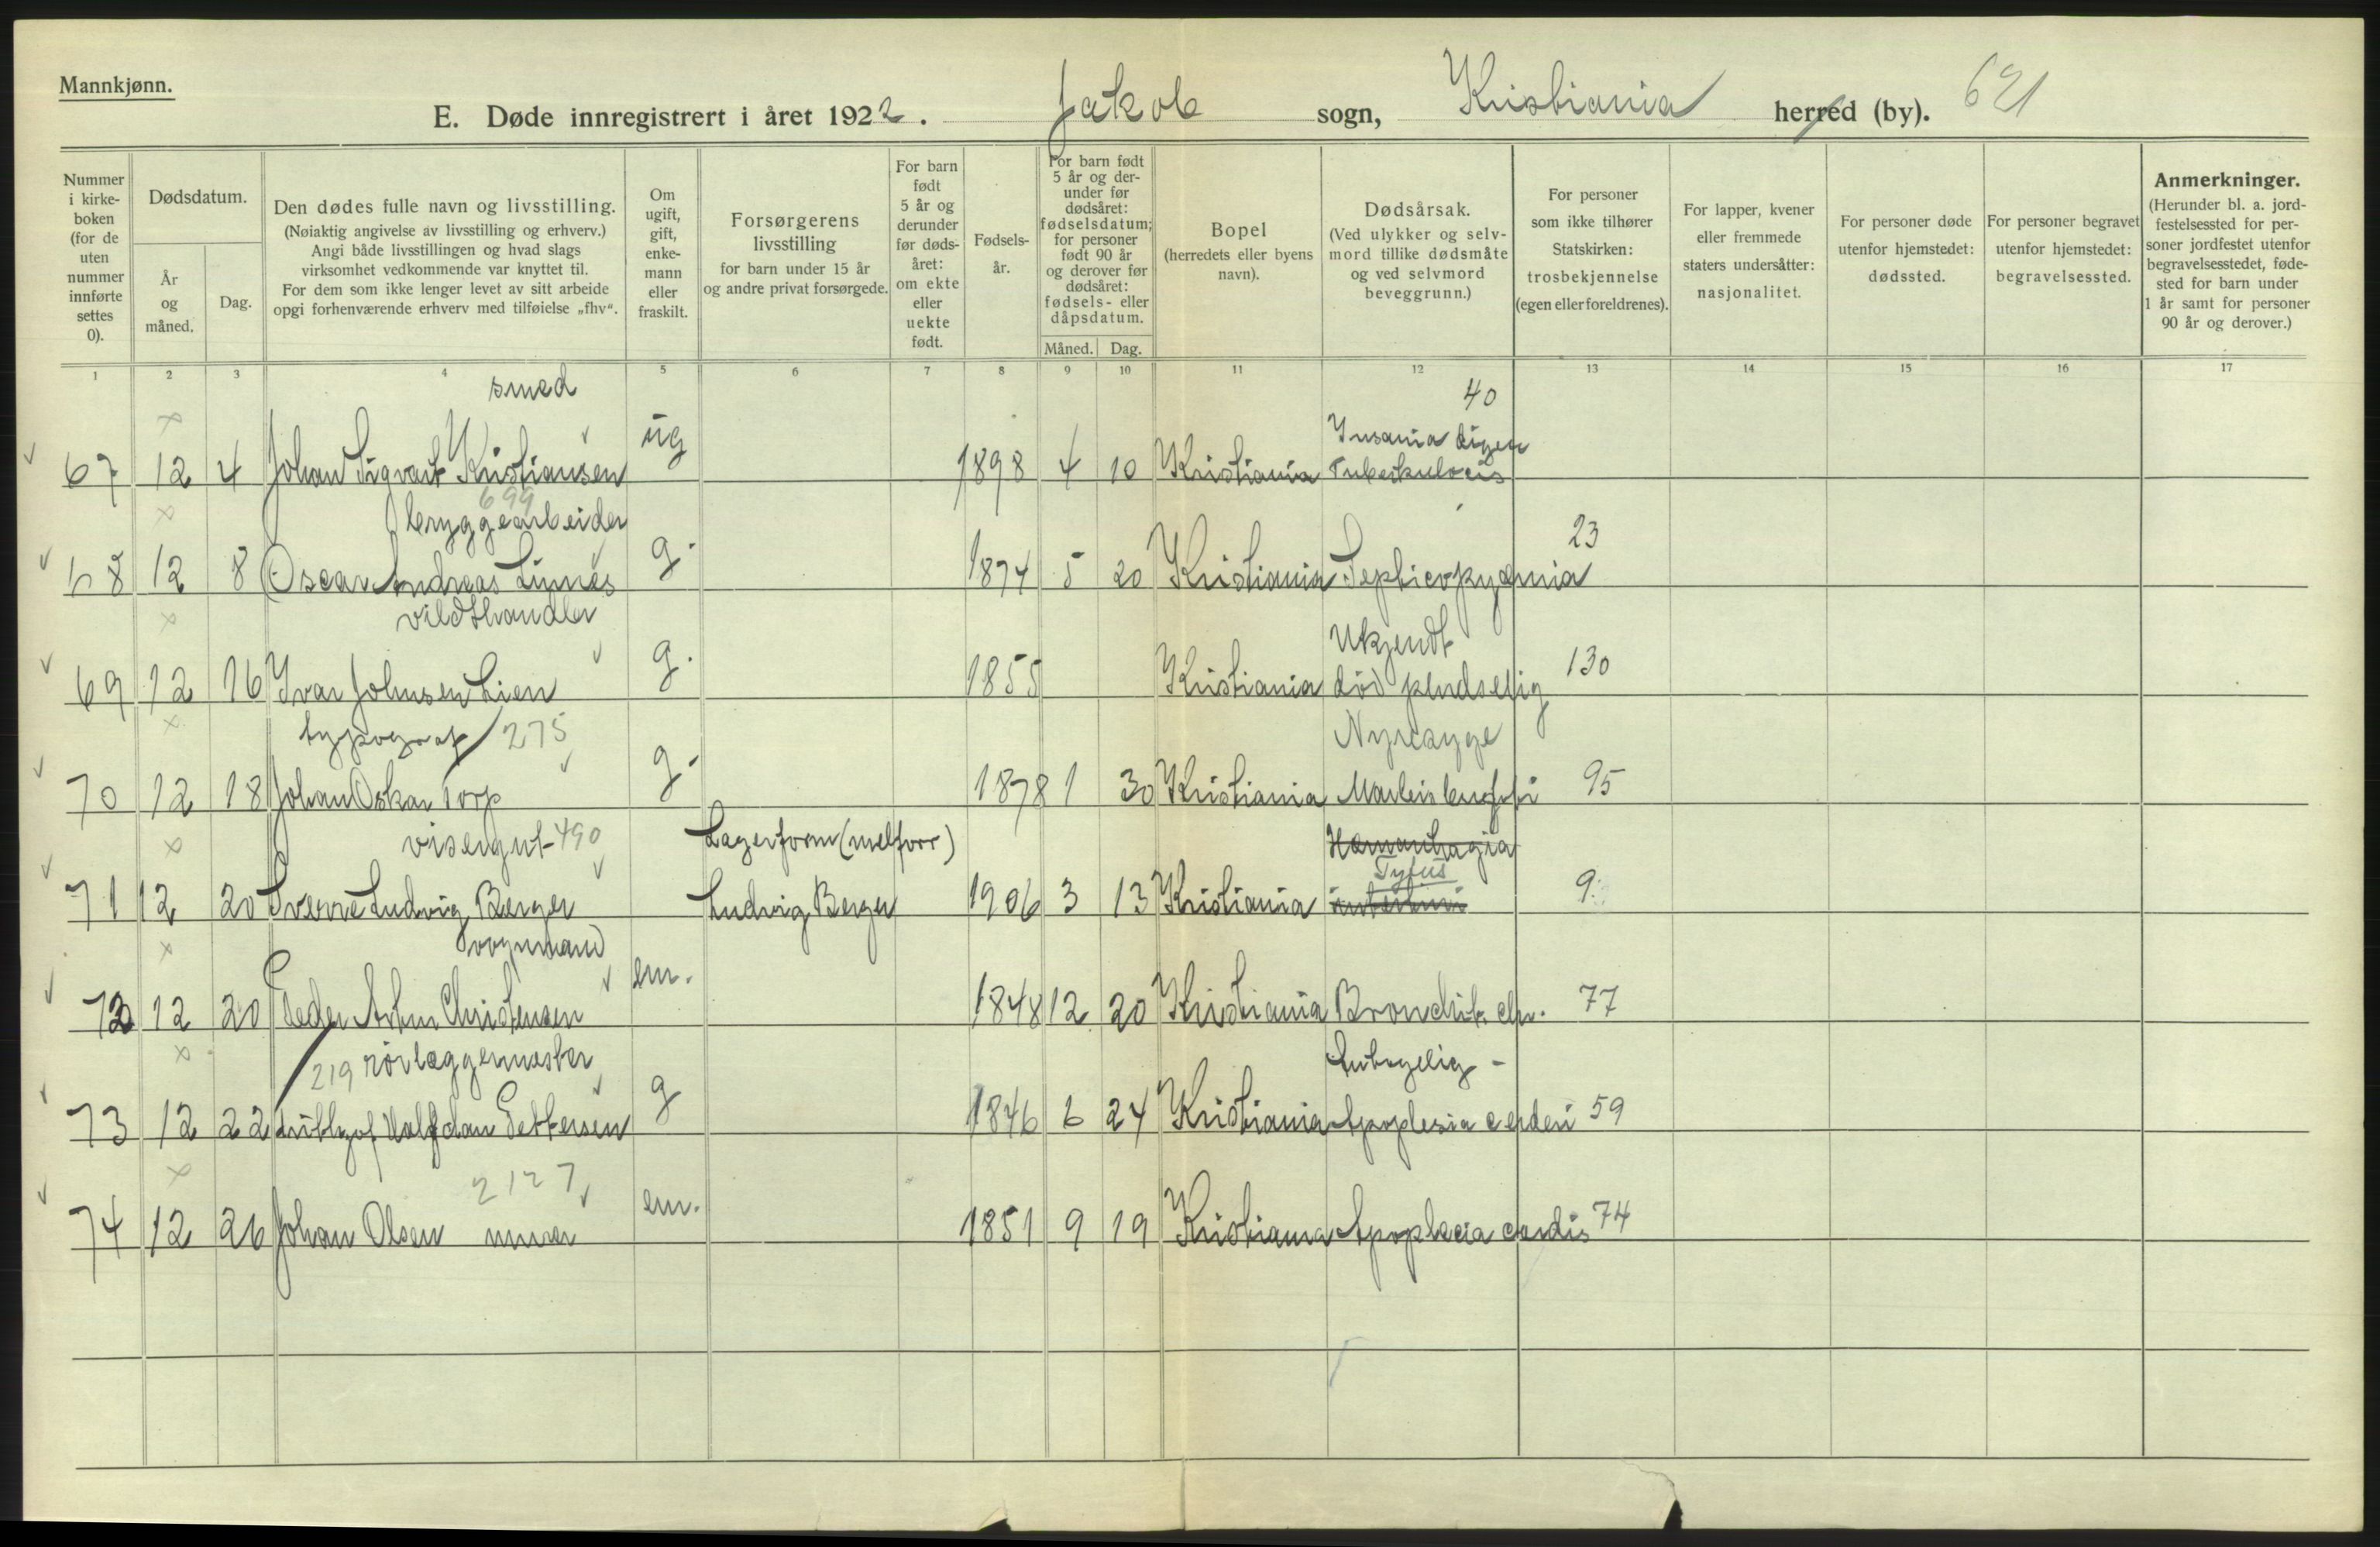 Mannkjønn.
E. Døde innregistrert i året 1922. Jakob sogn, Kristiania herred (by). 621
Nummer i kirkeboken (for de uten nummer innførte settes 0).
Dødsdatum.
År og måned.
Dag.
Den dødes fulle navn og livsstilling.
(Nøiaktig angivelse av livsstilling og erhverv.)
Angi både livsstillingen og hvad slags
virksomhet vedkommende var knyttet til.
For dem som ikke lenger levet av sitt arbeide
opgi forhenværende erhverv med tilføielse „fhv“.
Om ugift, gift, enkemann eller fraskilt.
Forsørgerens livsstilling
for barn under 15 år
og andre privat forsørgede.
For barn født 5 år og derunder før dødsåret: om ekte eller uekte født.
Fødselsår.
For barn født 5 år og derunder før dødsåret: fødselsdatum; for personer født 90 år og derover før dødsåret: fødsels- eller dåpsdatum.
Måned. Dag.
Bopel
(herredets eller byens navn).
Dødsårsak.
(Ved ulykker og selvmord tillike dødsmåte og ved selvmord beveggrunn.)
For personer som ikke tilhører Statskirken: trosbekjennelse (egen eller foreldrenes).
For lapper, kvener eller fremmede staters undersåtter: nasjonalitet.
For personer døde utenfor hjemstedet: dødssted.
For personer begravet utenfor hjemstedet: begravelsessted.
Anmerkninger.
(Herunder bl. a. jordfestelsessted for personer jordfestet utenfor begravelsesstedet, fødested for barn under 1 år samt for personer 90 år og derover.)
1 2 3 4 5 6 7 8 9 10 11 12 13 14 15 16 17
smed 40
Insania
67 12 4 Johan Sigvart Kristiansen ug 1898 4 10 Kristiania Tuberkulosis
699
bryggearbeider 23
68 12 8 Oscar Andreas Linnes g. 1874 5 20 Kristiania Septicopyæmia
vildthandler Ukjendt
69 12 16 Ivar Johnsen Lien g. 1855 Kristiania død pludselig 130
typograf 275
70 12 18 Johan Oskar Torp g. 1878 1 30 Kristiania 95
visergut 490 Lagerform (melforr) Tyfus
71 12 20 Sverre Ludvig Berger Ludvig Berger 1906 3 13 Kristiania 9
vognmand
72 12 20 Peder Anton Christensen em. 1848 12 20 Kristiania Bronchit. chr. 77
219 rørlæggermester
73 12 22 Halfdan Pettersen g 1846 6 24 Kristiania Apoplexia 59
2127
74 12 26 Johan Olsen murer em. 1851 9 19 Kristiania Apoplexia cordis 74